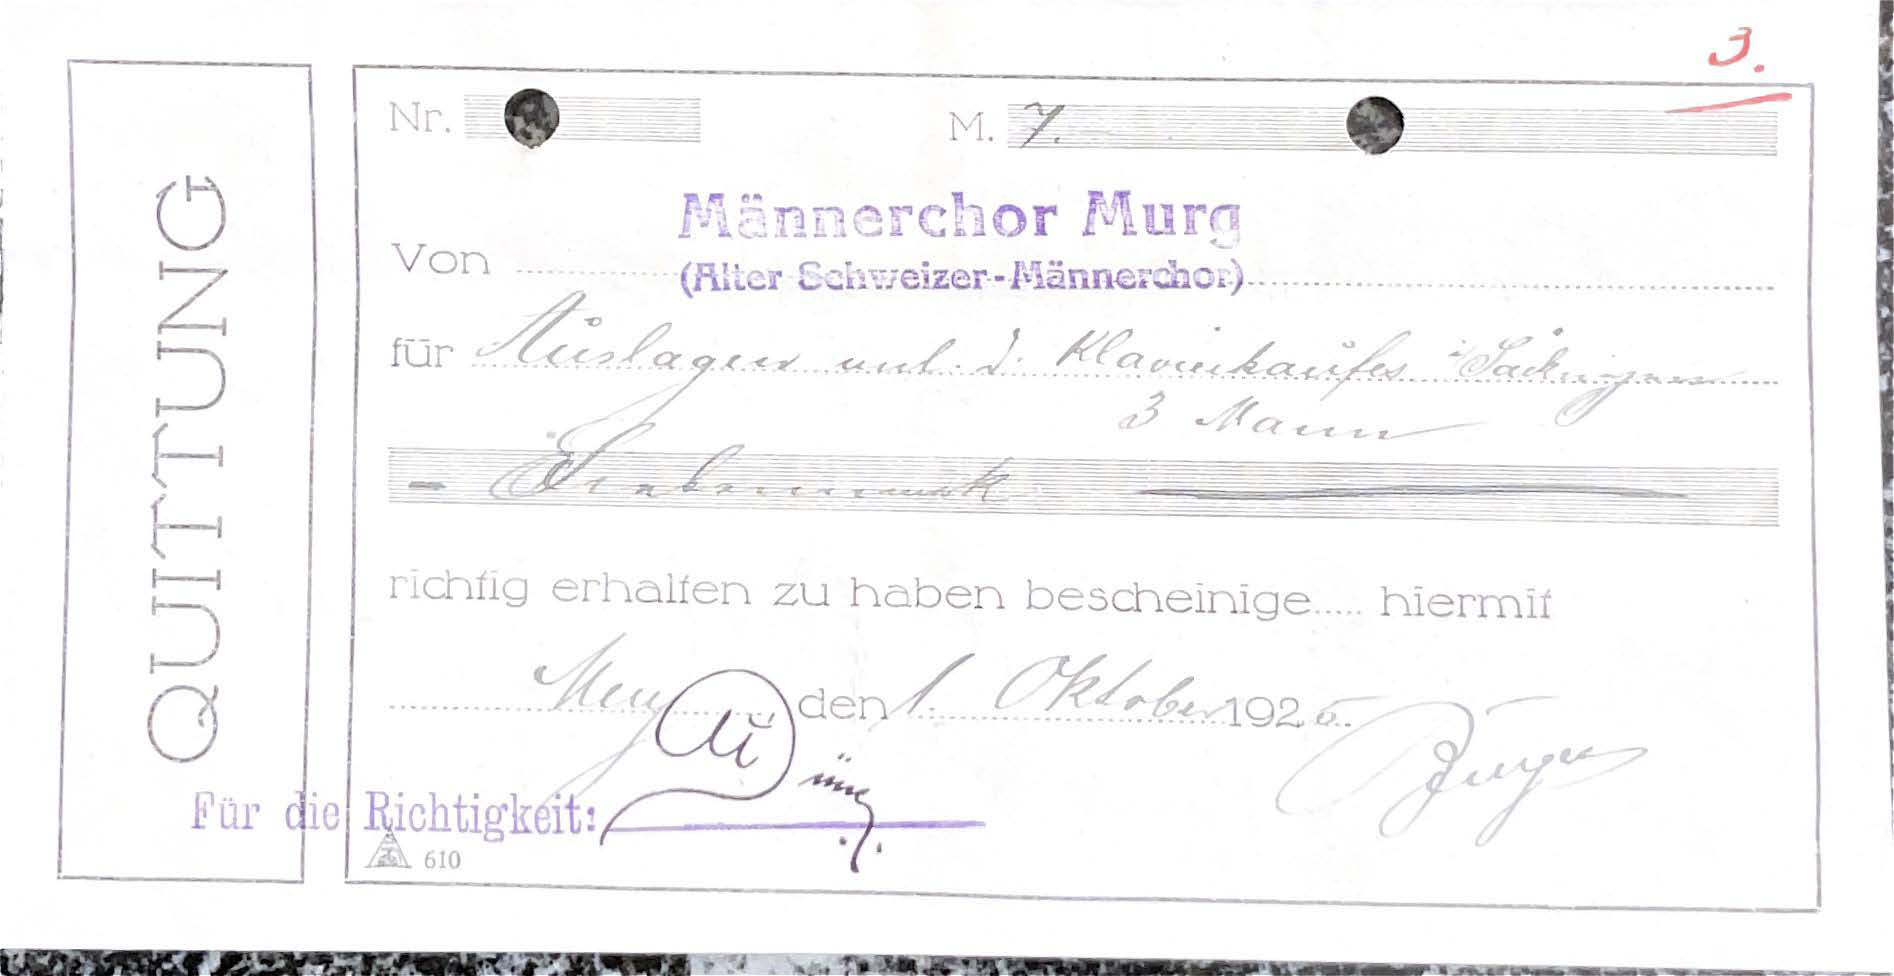 3.
QUITTUNG
Nr. M. 7.
Männerchor Murg
Von (Alter Schweizer-Männerchor)
für Auslagen anl. d. Klavierkaufes i. Säckingen
3 Mann
richtig erhalten zu haben bescheinige..... hiermit
Murg den 1. Oktober 1925.
Für die Richtigkeit:
610